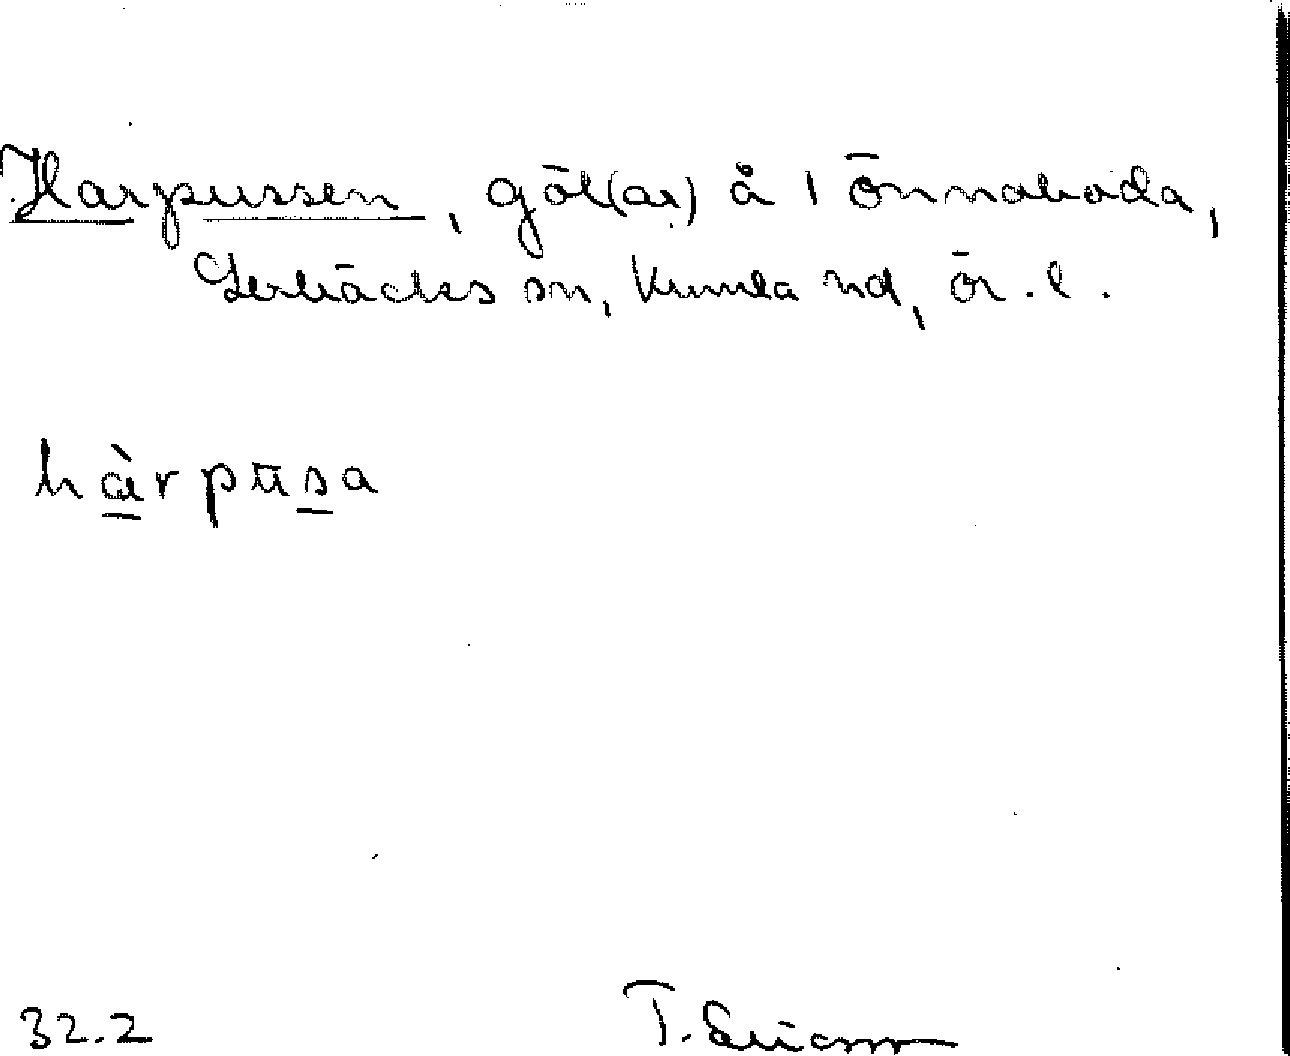 Harpussen, göl(ar) å 1 Önnaboda,
Lerbäcks sn, Kumla hd, Ör. l.
hàrpusa
32.2
T. Ericsson